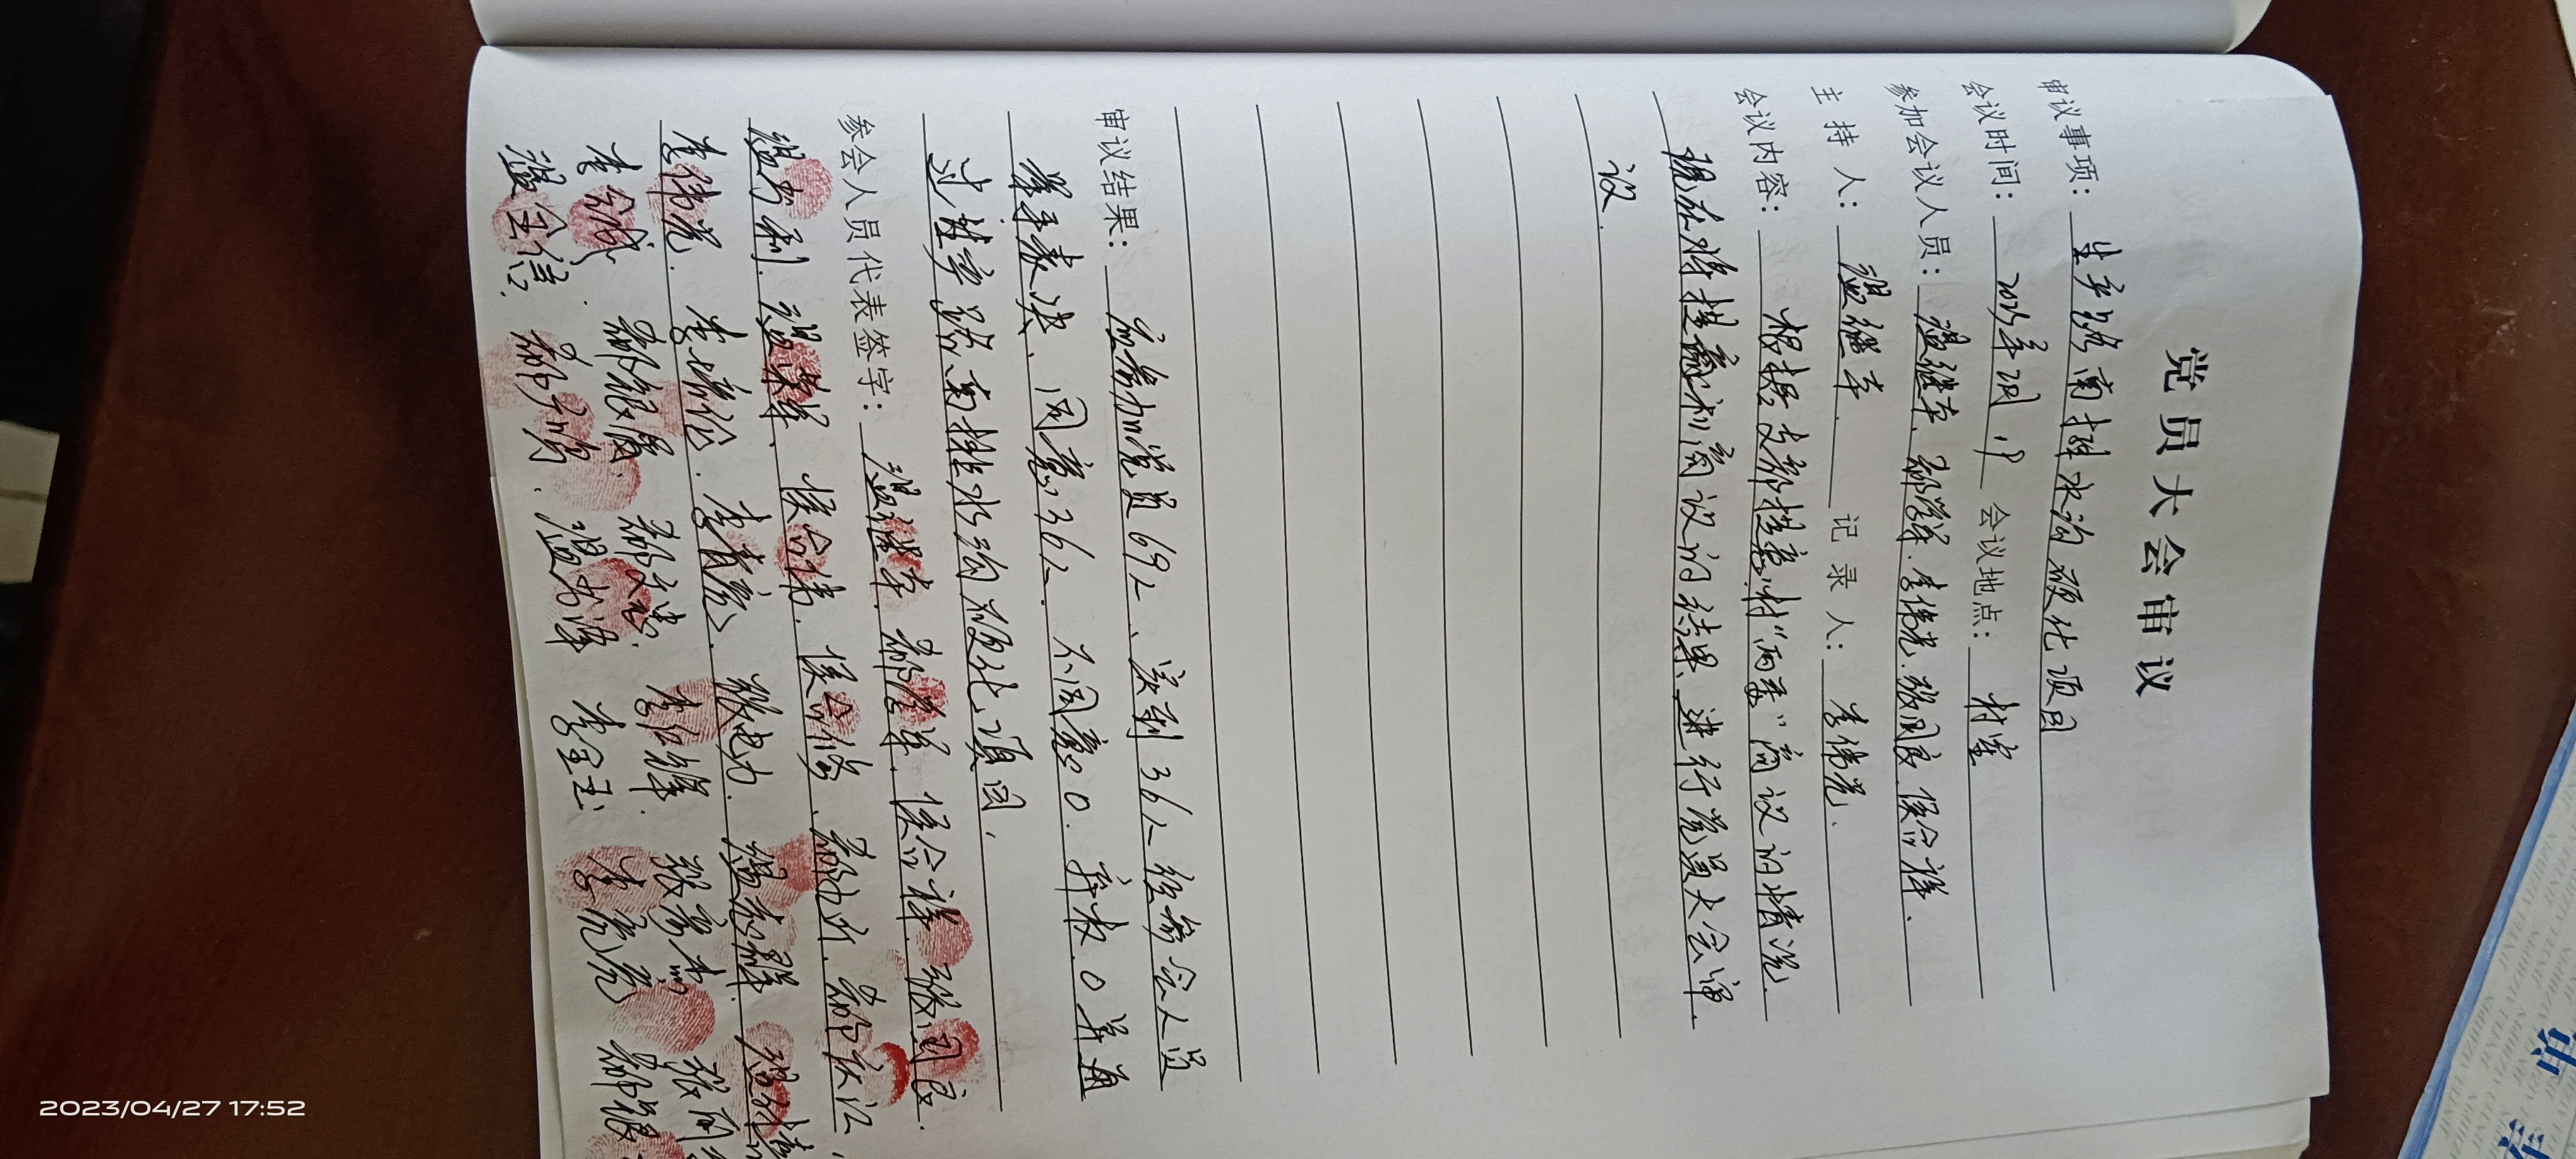 党员大会审议
审议事项：生产路南排水沟硬化项目
会议时间：2023年2月19 会议地点：村室
参加会议人员：温继车、郝学军、李伟光、张国良、侯合祥、
主持人：温继车. 记录人：李伟光.
会议内容：根据支部提意、村“两委”商议的情况
现在将提意和商议的结果、进行党员大会审
议.
审议结果：应参加党员69人、实到36人 经参会人员
举手表决、同意36人、不同意0. 弃权.0 票通
过生产路南排水沟硬化项目.
参会人员代表签字：温继车、郝学军、侯合祥、张国良.
温书利、温荣军、侯合伟、侯合修、郝庆江
李伟光、李培伦、李青亮、张电力、温志群
李合成、郝银属、郝文忠、李红锋、张彦杰
温全信、郝广鸣、温书泽 李全玉 李亮亮 郝银
2023/04/27 17:52